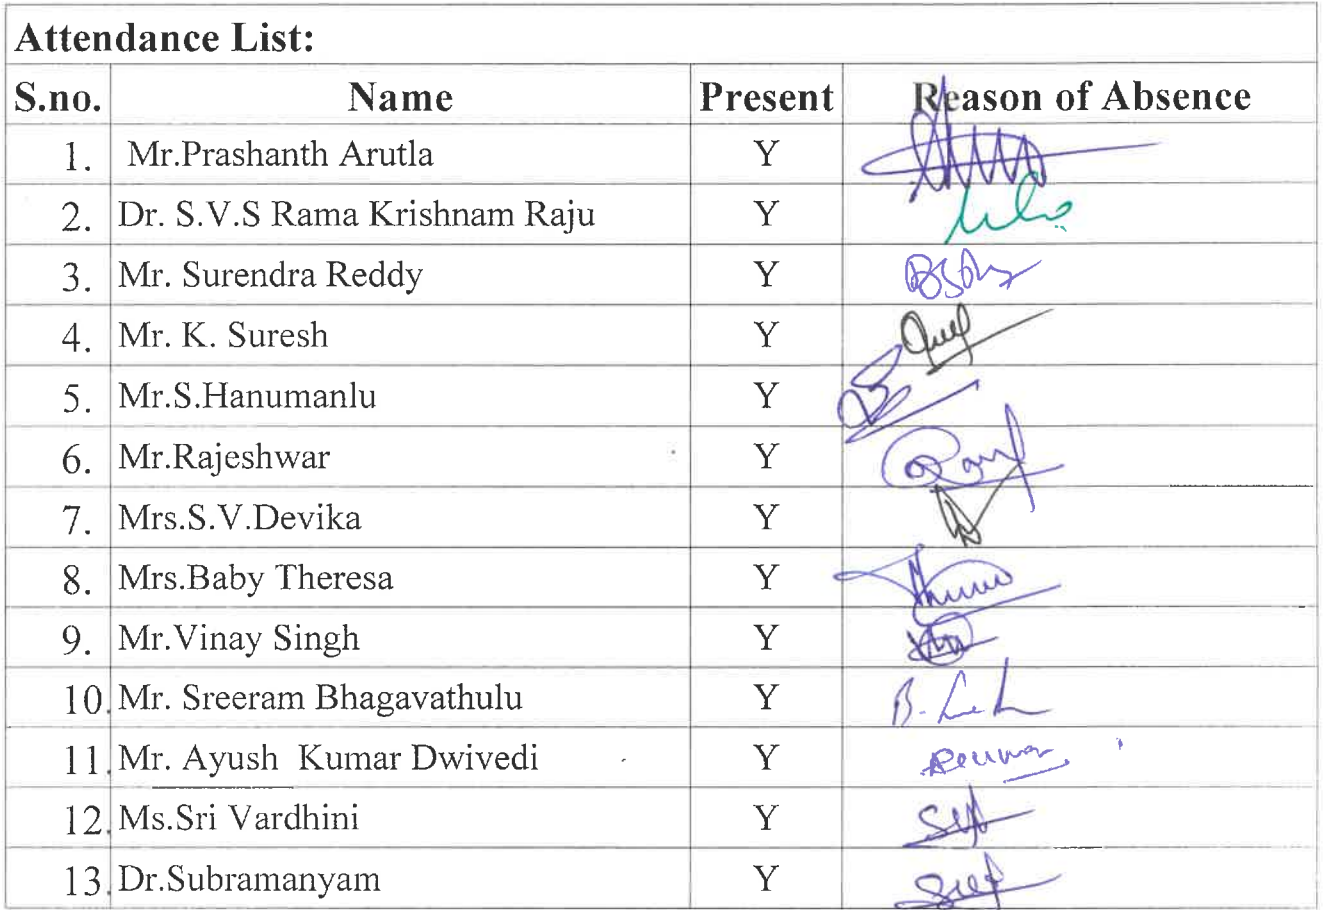 Attendance List:
S.no. Name Present Reason of Absence
1. Mr.Prashanth Arutla Y
2. Dr. S.V.S Rama Krishnam Raju Y
3. Mr. Surendra Reddy Y
4. Mr. K. Suresh Y
5. Mr.S.Hanumanlu Y
6. Mr.Rajeshwar Y
7. Mrs.S.V.Devika Y
8. Mrs.Baby Theresa Y
9. Mr.Vinay Singh Y
10. Mr. Sreeram Bhagavathulu Y
11. Mr. Ayush Kumar Dwivedi Y
12. Ms.Sri Vardhini Y
13. Dr.Subramanyam Y